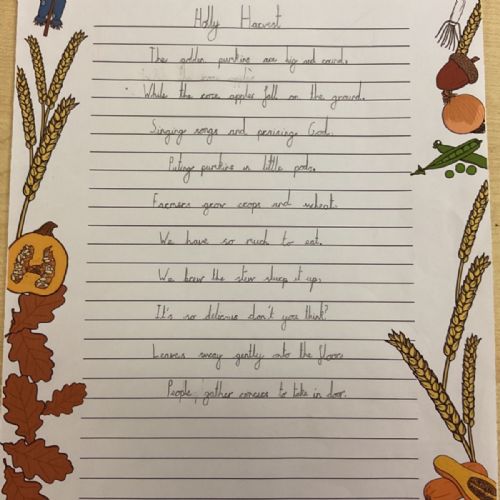 Holly Harvest
The golden pumkins are big and round.
While the rose apples fall on the ground.
Singing songs and praising God.
Puting pumkins in little pods.
Farmers grow crops and wheat.
We have so much to eat.
We brew the stew slurp it up,
It's so delicious don't you think?
Leaves sway gently onto the floor
People gather to take in door.